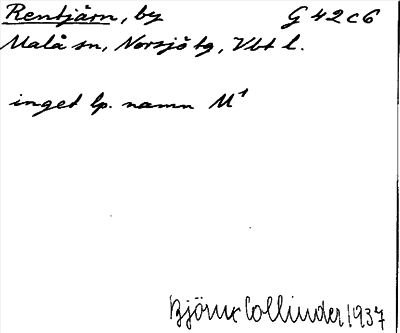 Rentjärn, by G 42 c 6
Malå sn, Norsjö tg, Vbt l.
inget lp. namn M¹
Björn Collinder 1937